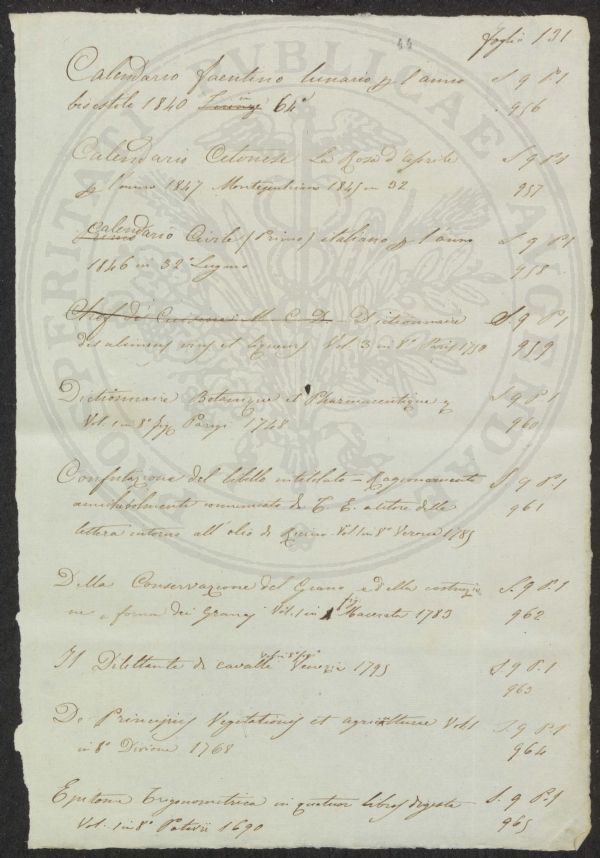 44
foglio 131
Calendario faentino lunario p l'anno S. 9 P. 1
bisestile 1840 Firenze in 64° 956
Calendario Cetonese La Rosa d'aprile S. 9 P. 1
p l'anno 1847 Montepulciano 1845 in 32 957
Calendario Civile (Primo) italiano p l'anno S. 9 P. 1
1846 in 32° Lugano 958
M. C. D. Dictionnaire S. 9 P. 1
des alimens vins et liqueurs Vol. 3 in 8° Paris 1750 959
Dictionnaire Botanique et Pharmaceutique S. 9 P. 1
Vol. 1 in 8° Parigi 1748 960
Confutazione del libello intitolato = Ragionamento S. 9 P. 1
amichevolmente comunicato da T. E. autore della 961
lettera intorno all'olio di Ricino Vol. 1 in 8° Verona 1785
Della Conservazione del Grano e della costruzio S. 9 P. 1
ne e forma dei Granaj Vol. 1 in fig. Macerata 1783 962
Il Dilettante di cavalli vol. in 8° fig° Venezia 1795 S. 9 P. 1
963
De Principiis Vegetationis et agriculturae Vol. 1 S. 9 P. 1
in 8° Divione 1768 964
Epitome Trigonometrica in quatuor libros digesta S. 9 P. 1
Vol. 1 in 8° Patavii 1690 965
PUBLICAE